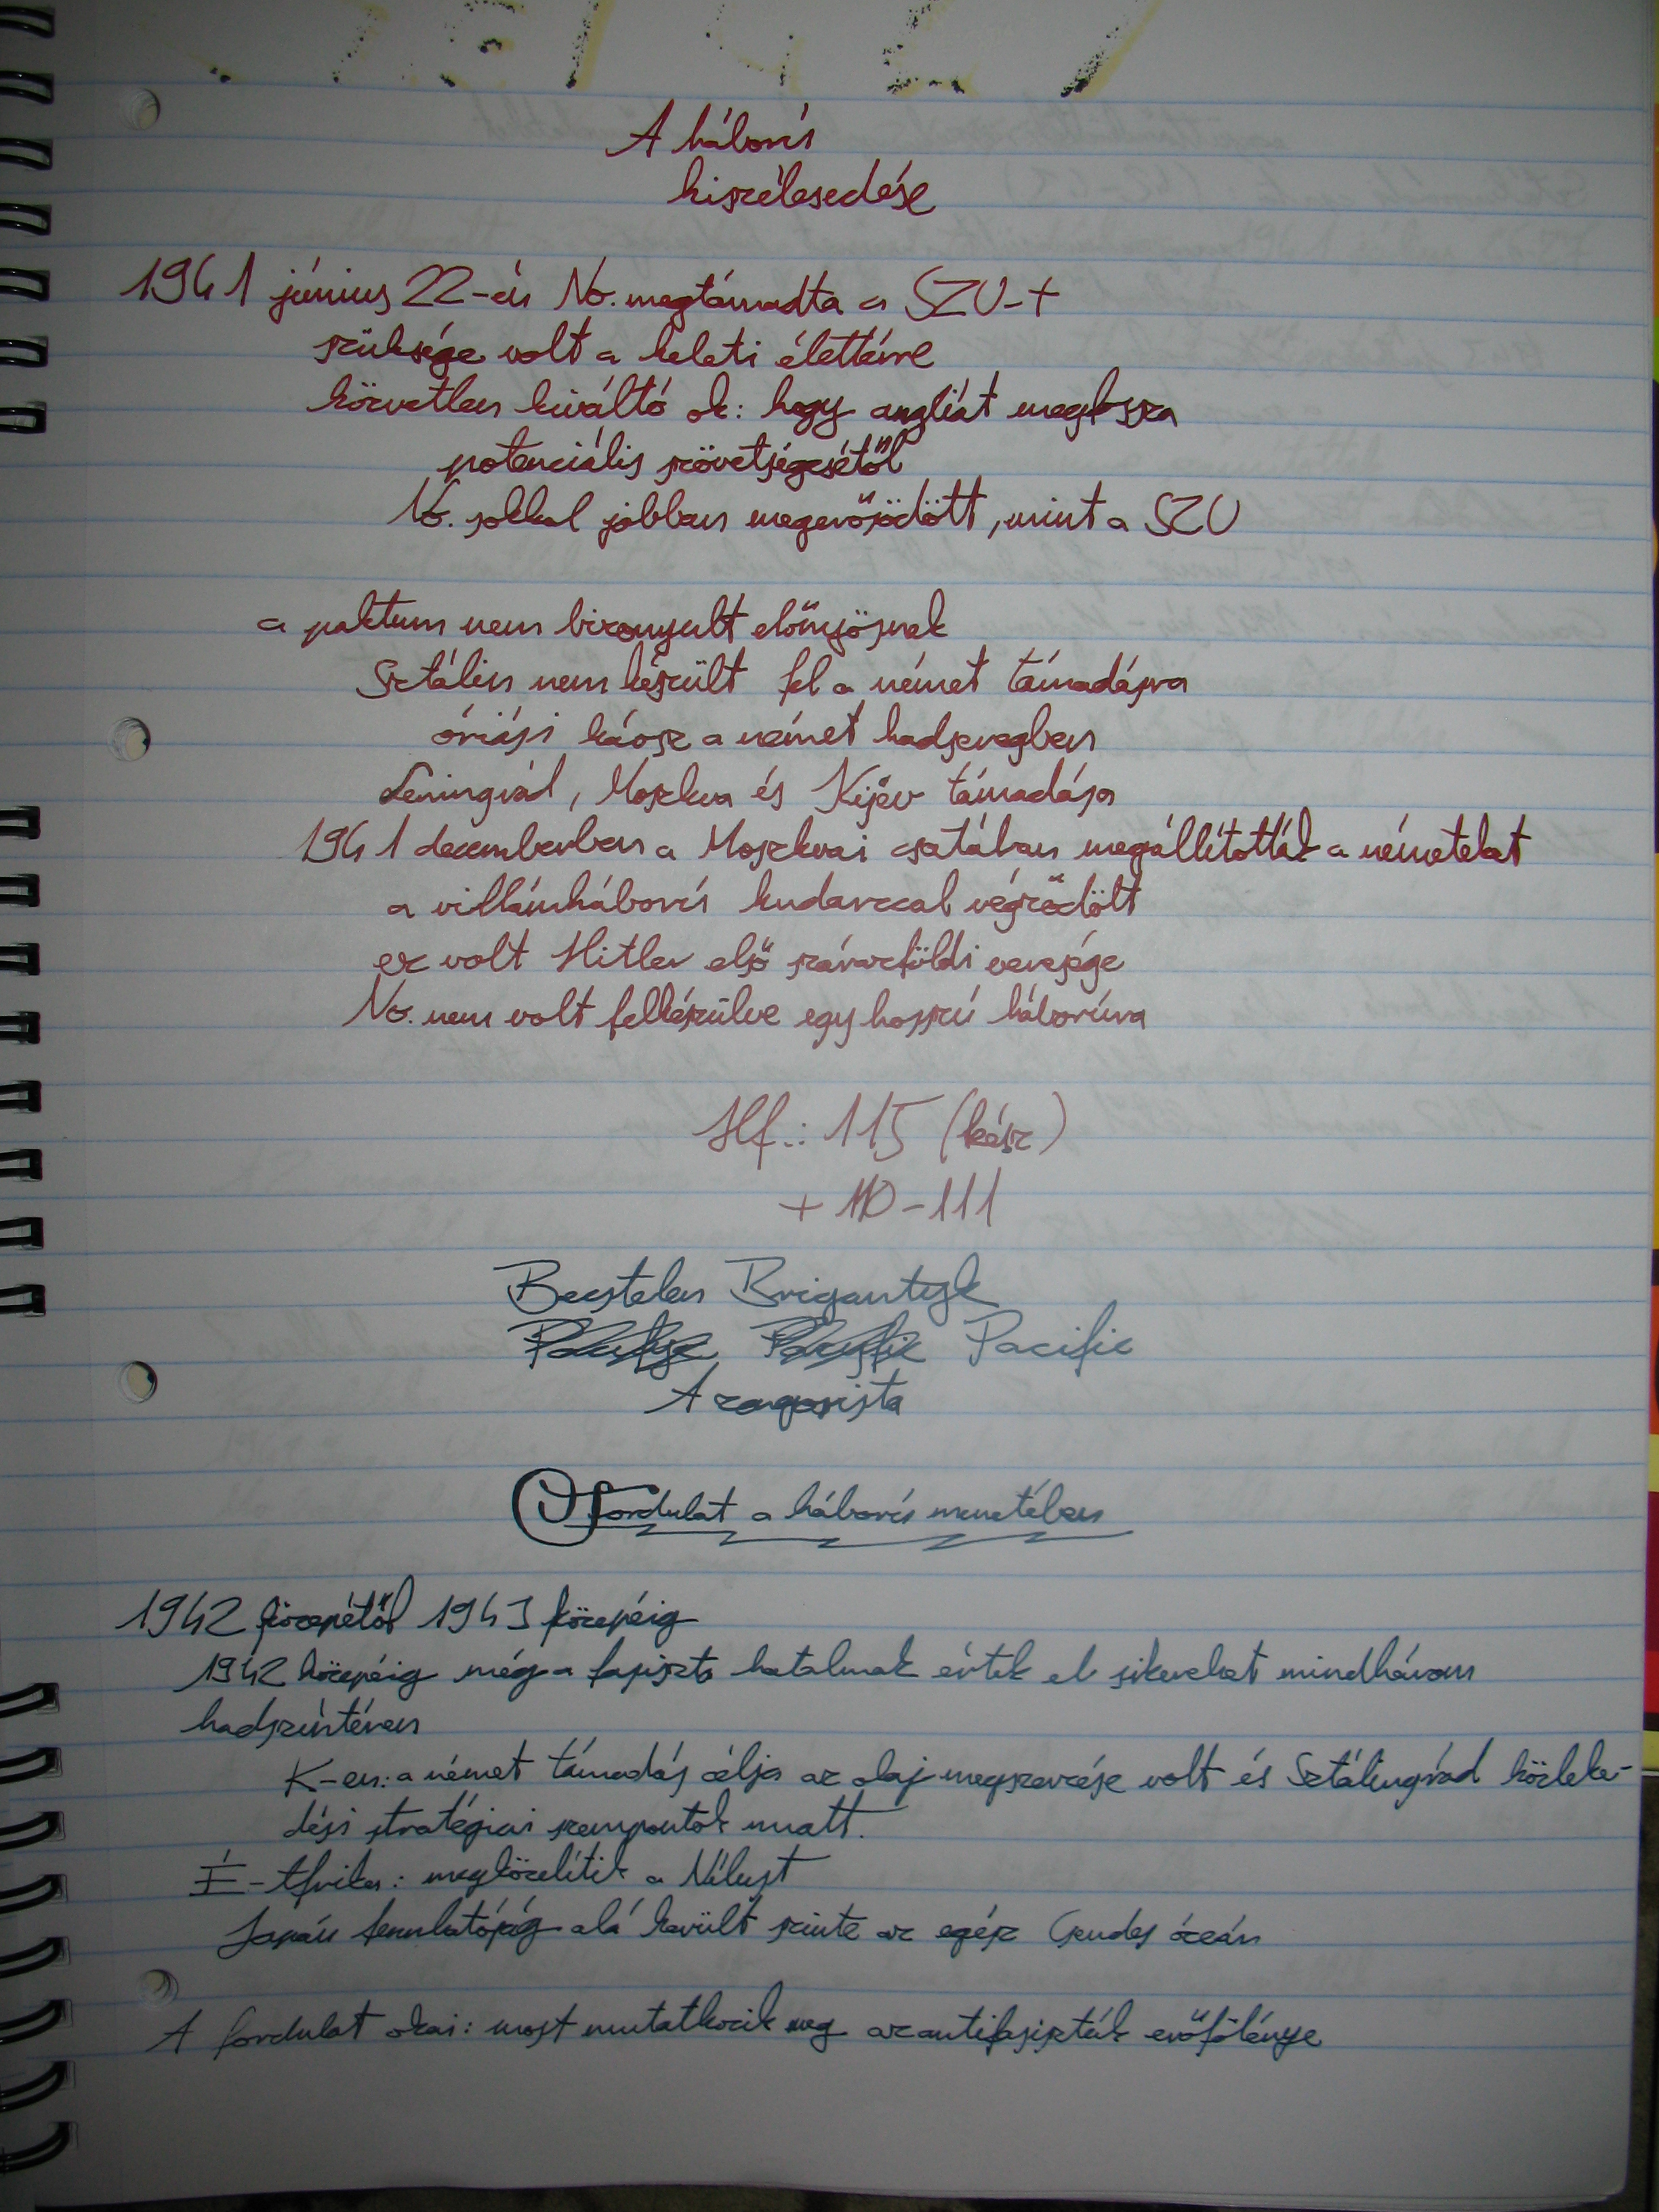 A háború
kiszélesedése
1941 június 22-én No. megtámadta a SZU-t
szüksége volt a keleti élettérre
közvetlen kiváltó ok: hogy angliát megfossza
potenciális szövetségesétől
No. sokkal jobban megerősödött, mint a SZU
a paktum nem bizonyult előnyösnek
Sztálin nem készült fel a német támadásra
óriási káosz a német hadseregben
Leningrád, Moszkva és Kijev támadása
1941 decemberben a Moszkvai csatában megállították a németeket
a villámháború kudarccal végződött
ez volt Hitler első szárazföldi veresége
No. nem volt felkészülve egy hosszú háborúra
Hf.: 115 (kész)
+ 110-111
Becstelen Brigantyk
Pacific
A zongorista
Fordulat a háború menetében
1942 közepétől 1943 közepéig
1942 közepéig még a fasiszta hatalmak értek el sikereket mindhárom
hadszíntéren
K-en: a német támadás célja az olaj megszerzése volt és Sztálingrád közleke-
dési stratégiai szempontok miatt.
É-Afrika: megközelítik a Nílust
Japán fennhatóság alá került szinte az egész Csendes óceán
A fordulat okai: most mutatkozik meg az antifasiszták erőfölénye